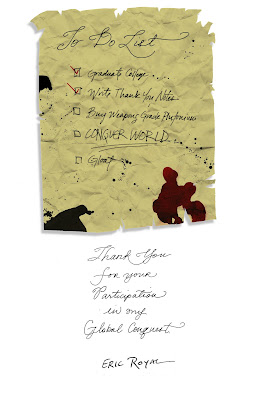 To Do List
Graduate College
Write Thank You Notes
Buy Weapons Grade Plutonium
CONQUER WORLD
Gloat
Thank You
for your
Participation
in my
Global Conquest
ERIC ROYAL